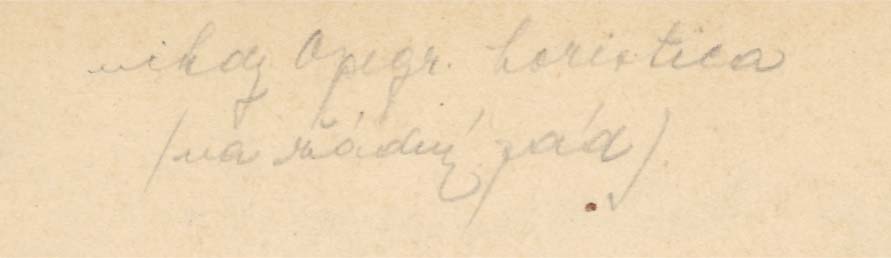 nikdy Opegr. horistica
(na žádný pád)